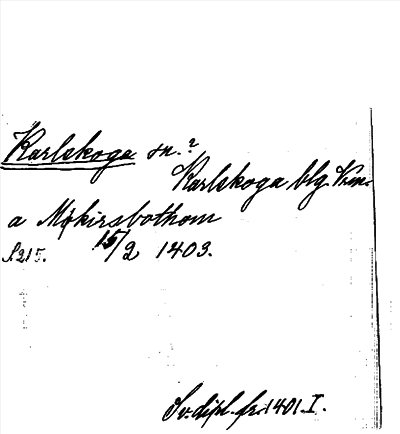 Karlskoga sn.?
Karlskoga blg. Vrm.
a Møkirsbothom
S.215. 15/2 1403.
Sv. dipl. fr. 1401. I.